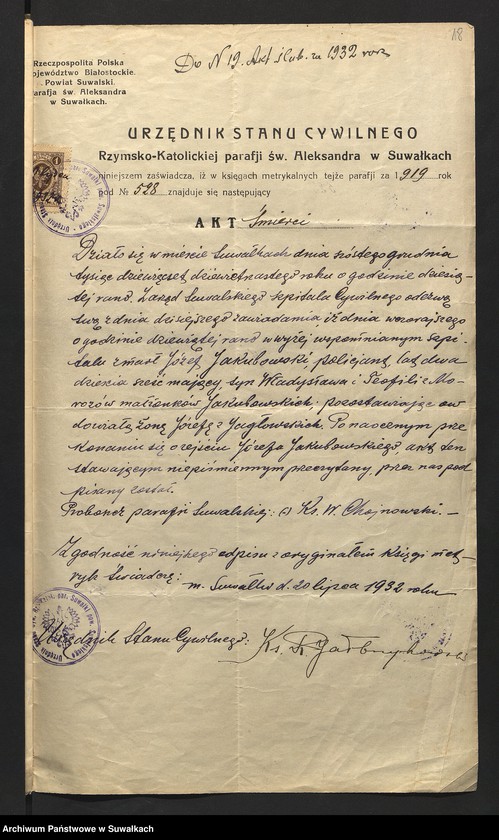 18
Do N 19. Akt ślub. za 1932 rok
Rzeczpospolita Polska
Województwo Białostockie.
Powiat Suwalski.
Parafja św. Aleksandra
w Suwałkach.
URZĘDNIK STANU CYWILNEGO
Rzymsko-Katolickiej parafji św. Aleksandra w Suwałkach
niniejszem zaświadcza, iż w księgach metrykalnych tejże parafji za 1919 rok
pod № 528 znajduje się następujący
AKT Śmierci
Działo się w mieście Suwałkach dnia szóstego grudnia
tysiąc dziewięćset dziewiętnastego roku o godzinie dziesią-
tej rano. Zarząd Suwalskiego szpitala Cywilnego odezwą
swą z dnia dzisiejszego zawiadamia, iż dnia wczorajszego
o godzinie dziewiątej rano w wyżej wspomnianym szpi-
talu zmarł Józef Jakubowski, policjant, lat dwa
dzieścia sześć mający, syn Władysława i Teofili z Mo-
rozów małżonków Jakubowskich, pozostawiając ow
dowiałą żonę Józefę z Jugłowskich. Po naocznym prze
konaniu się o zejściu Józefa Jakubowskiego, akt ten
stawającym niepiśmiennym przeczytany, przez nas pod
pisany został.
Proboszcz parafji Suwalskiej: (-) Ks. W. Chojnowski. —
Zgodność niniejszego odpisu z oryginałem księgi met-
ryk świadczę:
m. Suwałki d. 20 lipca 1932 roku
Urzędnik Stanu Cywilnego: Ks.
Archiwum Państwowe w Suwałkach